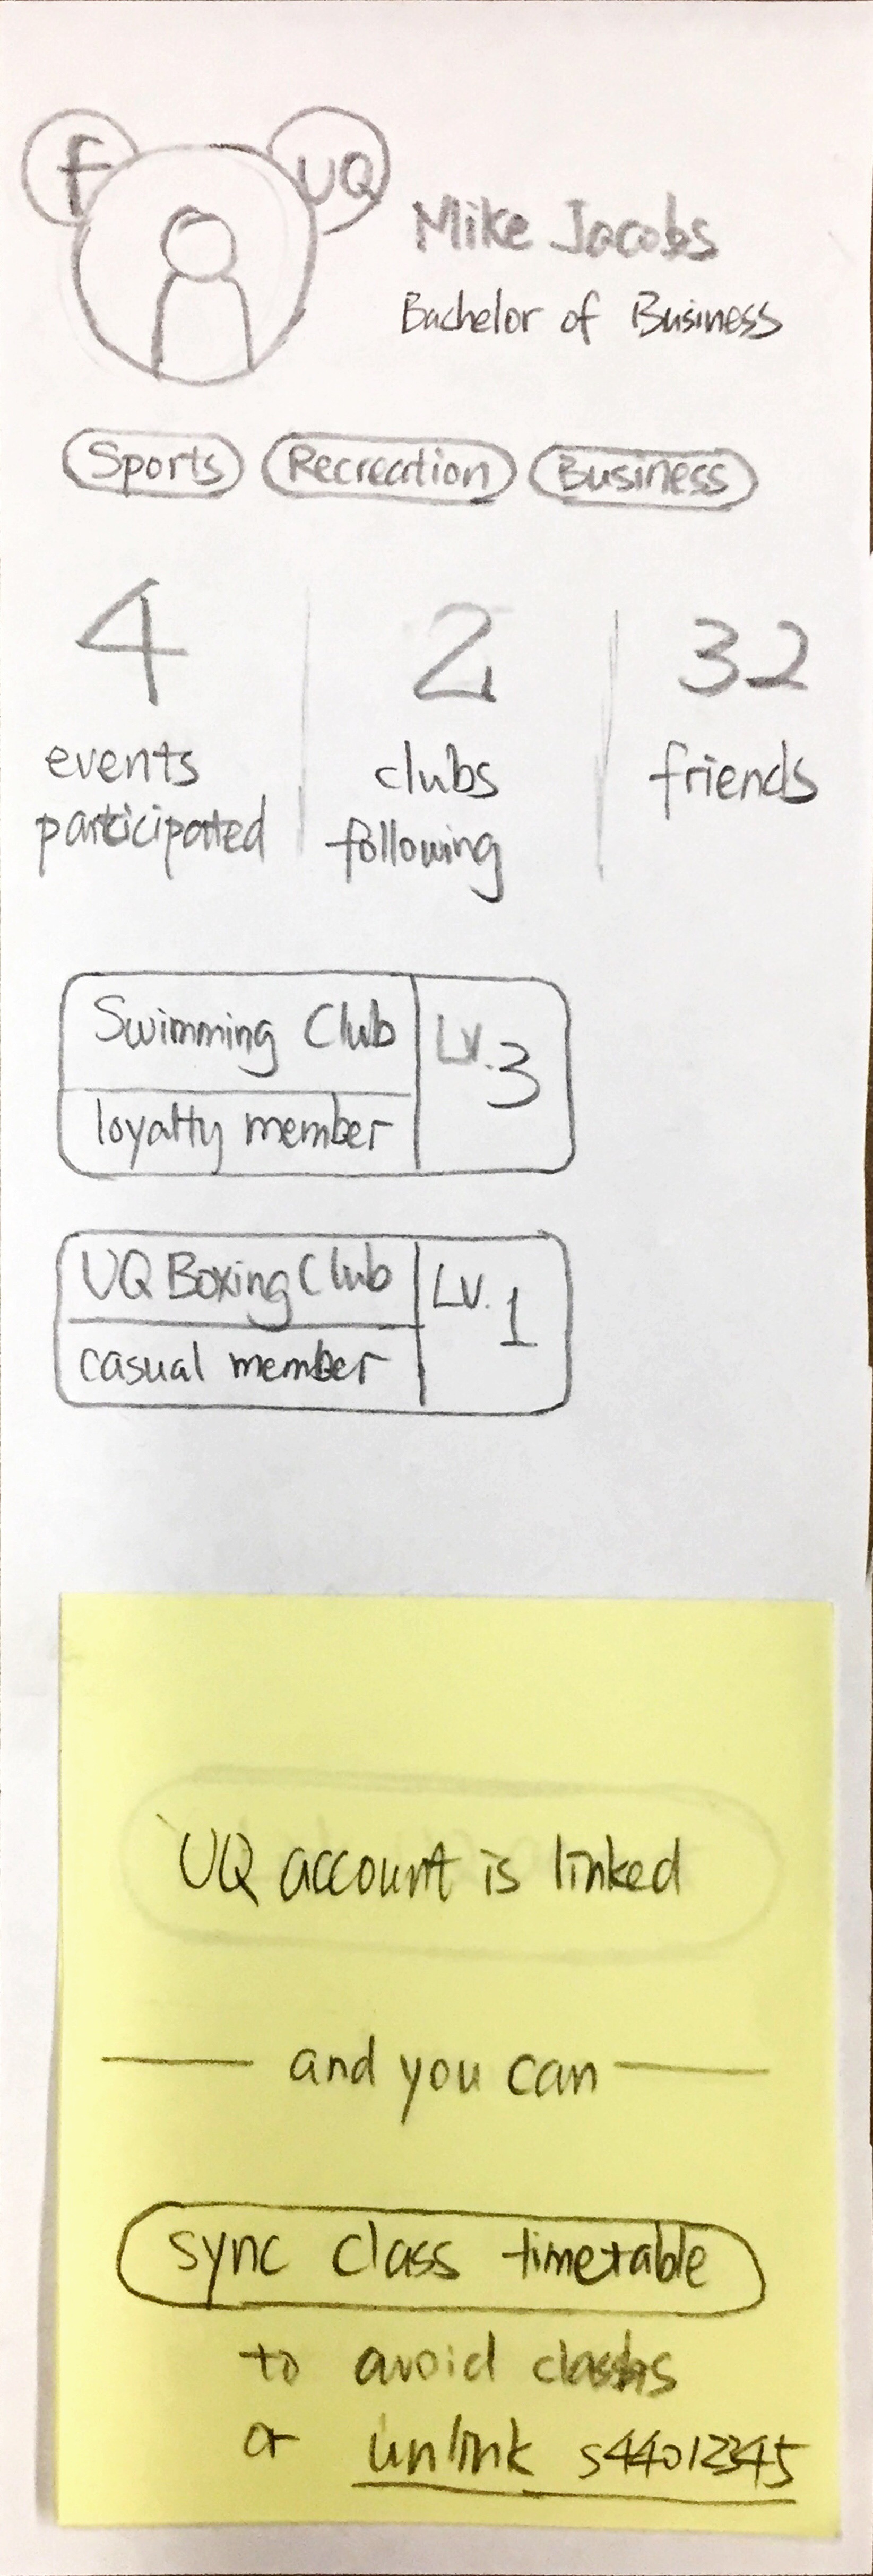 f
UQ
Mike Jacobs
Bachelor of Business
Sports Recreation Business
4 2 32
events participated
clubs following
friends
Swimming Club
loyalty member
Lv. 3
UQ Boxing Club
casual member
Lv. 1
UQ account is linked
and you can
sync class timetable
to avoid clashs
or unlink s44012345